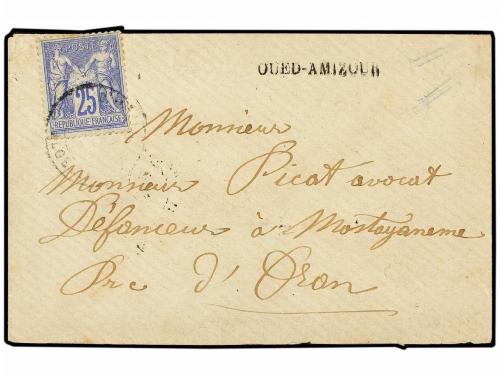 POSTE
25
REPUBLIQUE FRANÇAISE
OUED-AMIZOUR
Monsieur
Monsieur Picat avocat
Défanceur à Mostayaneme
Prc d'Oran